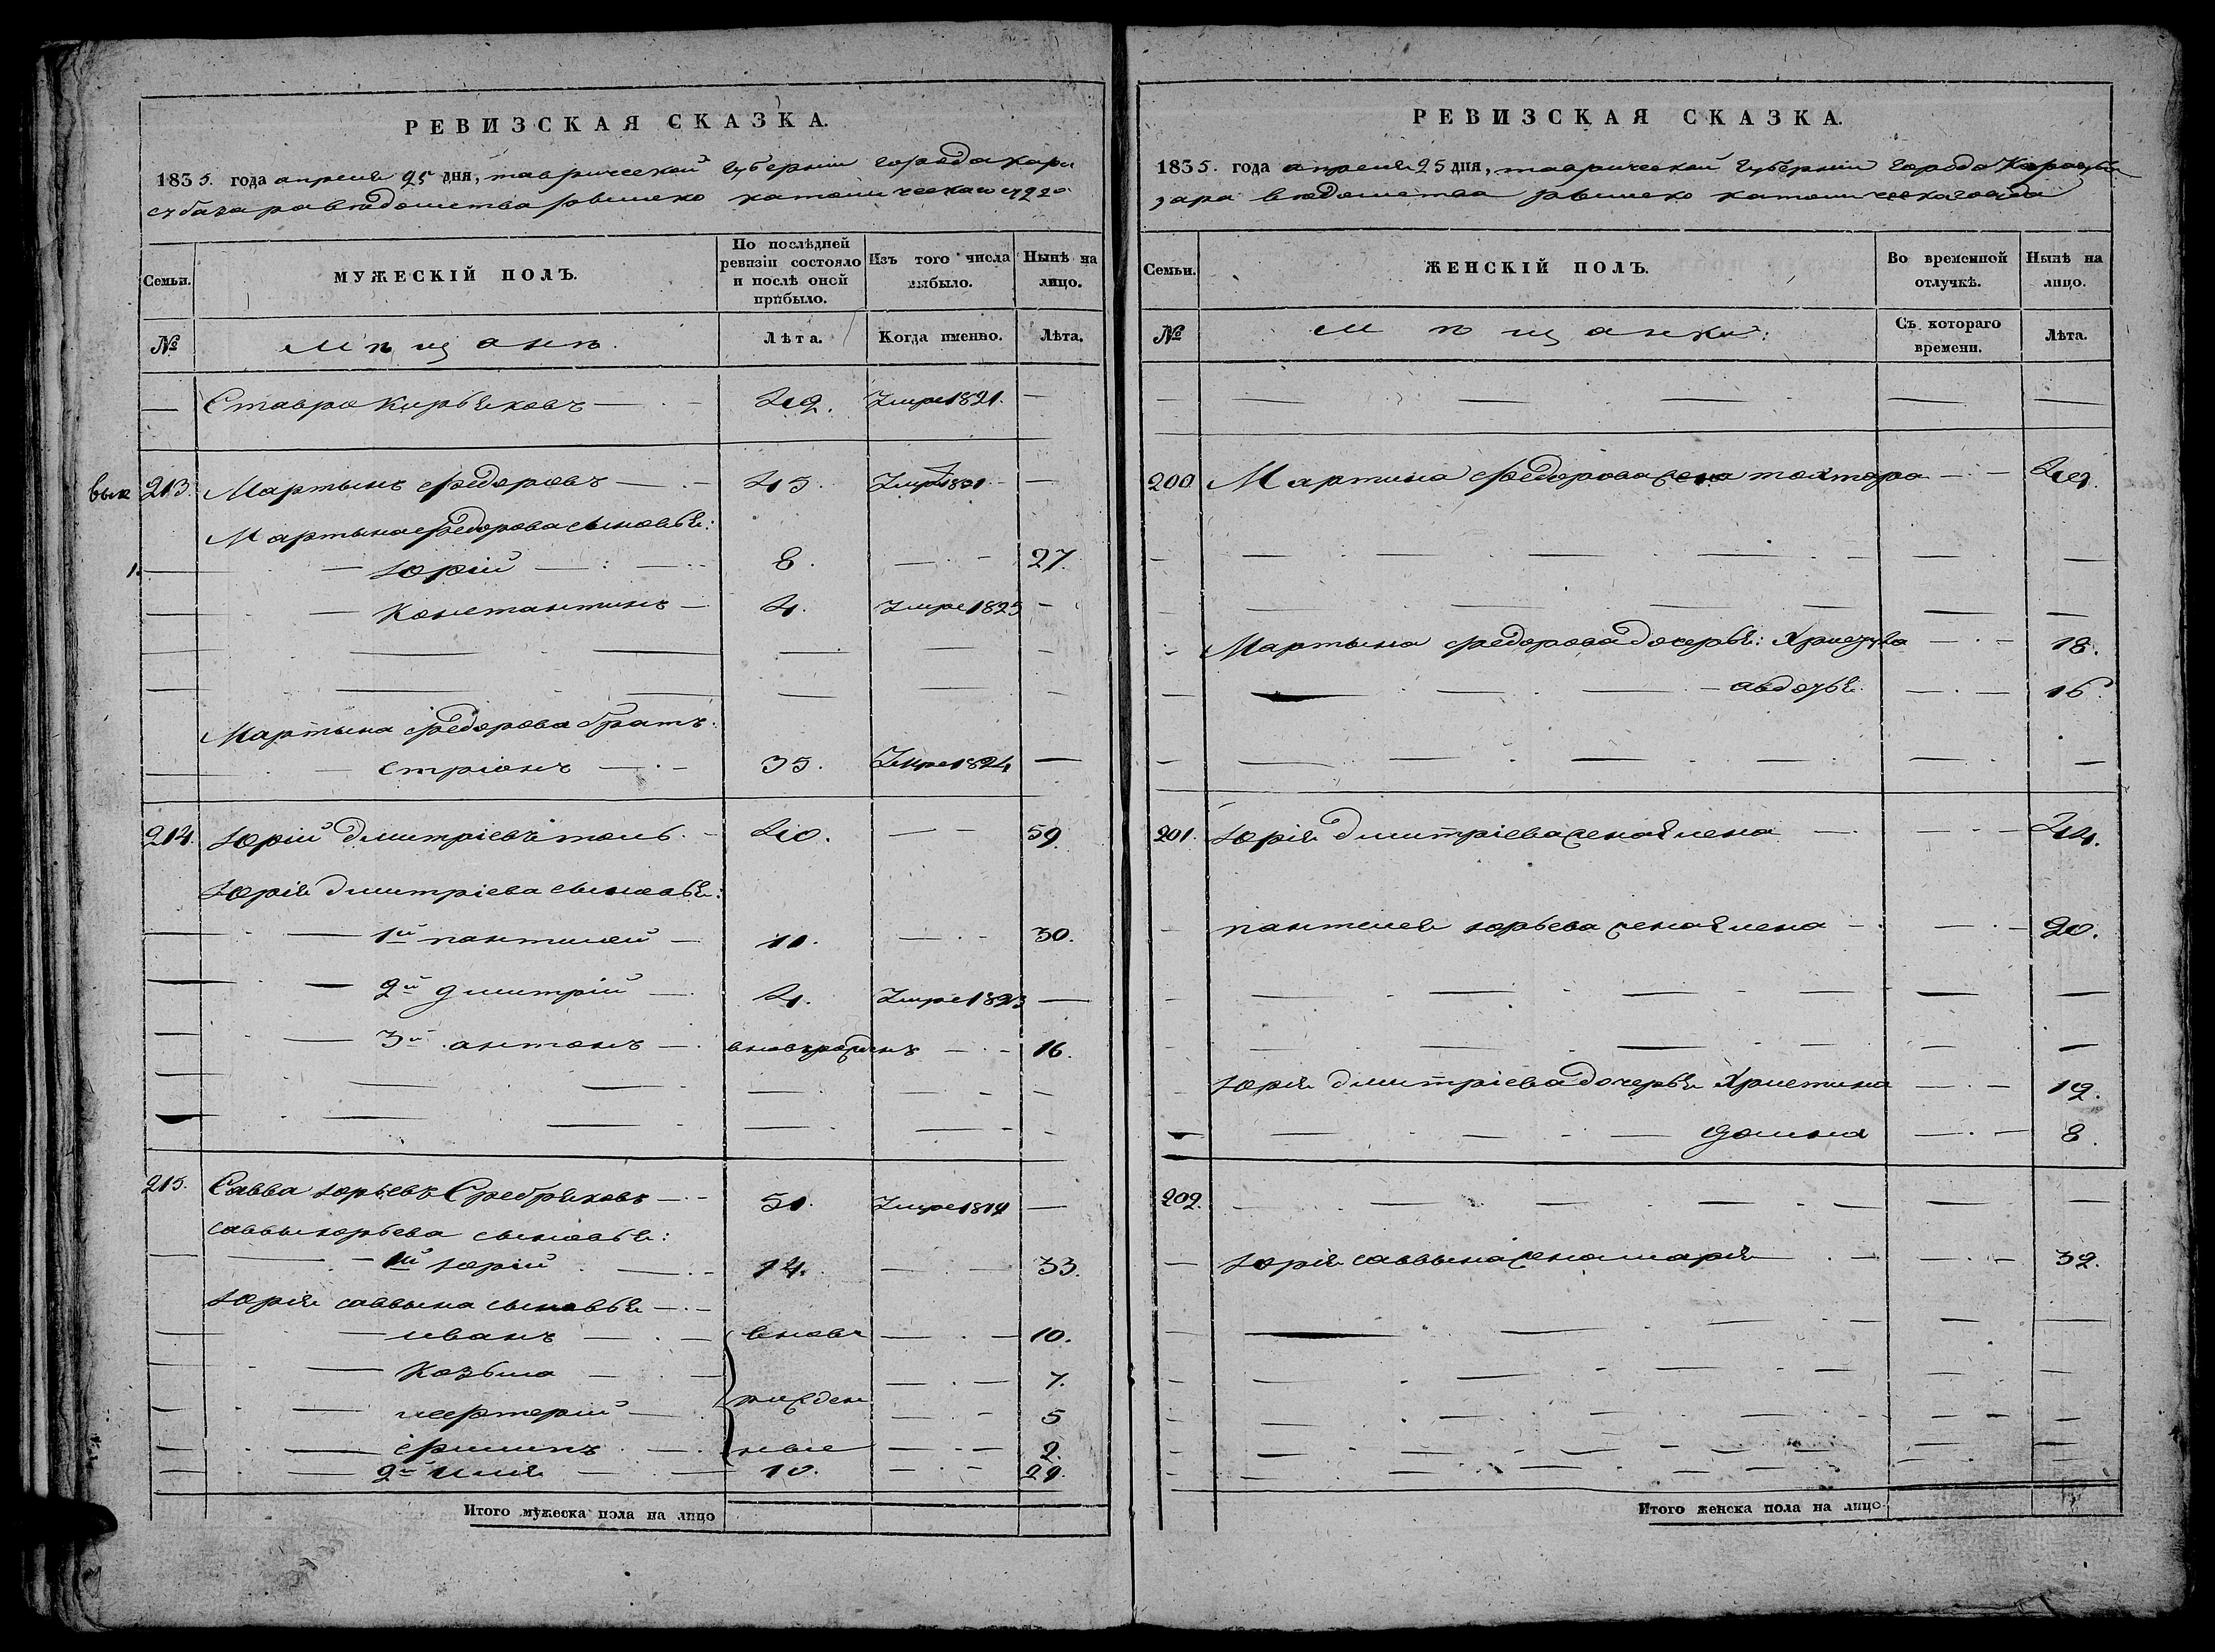 РЕВИЗСКАЯ СКАЗКА.
1835. года апреля 25 дня, таврической губернии города кара
субазара ведомства католическаго
Семьи.
МУЖЕСКІЙ ПОЛЪ.
По послѣдней ревизіи состояло и послѣ оной прибыло.
Изъ того числа выбыло.
Нынѣ на лицо.
№
Мѣщанѣ.
Лѣта.
Когда именно.
Лѣта.
— Ставро Кирьяковъ — 49. Умре 1821. —
213. Мартынъ Федоровъ — 45. —
Мартына Федорова сыновья:
1. — Юрій — 8. — 27.
— Константинъ — 4. Умре 1825 —
Мартына Федорова братъ
— 35. Умре 1824 —
214. Юрій Дмитріевъ — 40. — 59.
Юрія Дмитріева сыновья:
— 1й пантилей — 11. — 30.
— 2й дмитрій — 4. Умре 1823 —
— 3й антонъ — вновьрожденъ — 16.
215. Савва Юрьевъ Сребряковъ — 51. Умре —
Саввы юрьева сыновья:
— 1й юрій — 14. — 33.
Юрія саввина сыновья —
— иванъ — вновь — 10.
— Козьма — 7.
рожден
— 5
— ные — 2.
— 2й илія — 10. — 29.
Итого мужеска пола на лицо
РЕВИЗСКАЯ СКАЗКА.
1835. года апреля 25 дня, таврической губернии города Карасуба
зара ведомства католическаго
Семьи.
ЖЕНСКІЙ ПОЛЪ.
Во временной отлучкѣ.
Нынѣ на лицо.
№
Мѣщанки:
Съ котораго времени.
Лѣта.
200 Мартина Федорова жена — 49.
— Мартына Федорова дочерья: — 18.
— авдотья — 16.
201. Юрія Дмитріева жена Елена — 44.
— пантелея юрьева жена Елена — 20.
Юрія Дмитріева дочерья Христина — 19.
— домна — 8.
202. —
— Юрія саввина жена марія — 32.
Итого женска пола на лицо